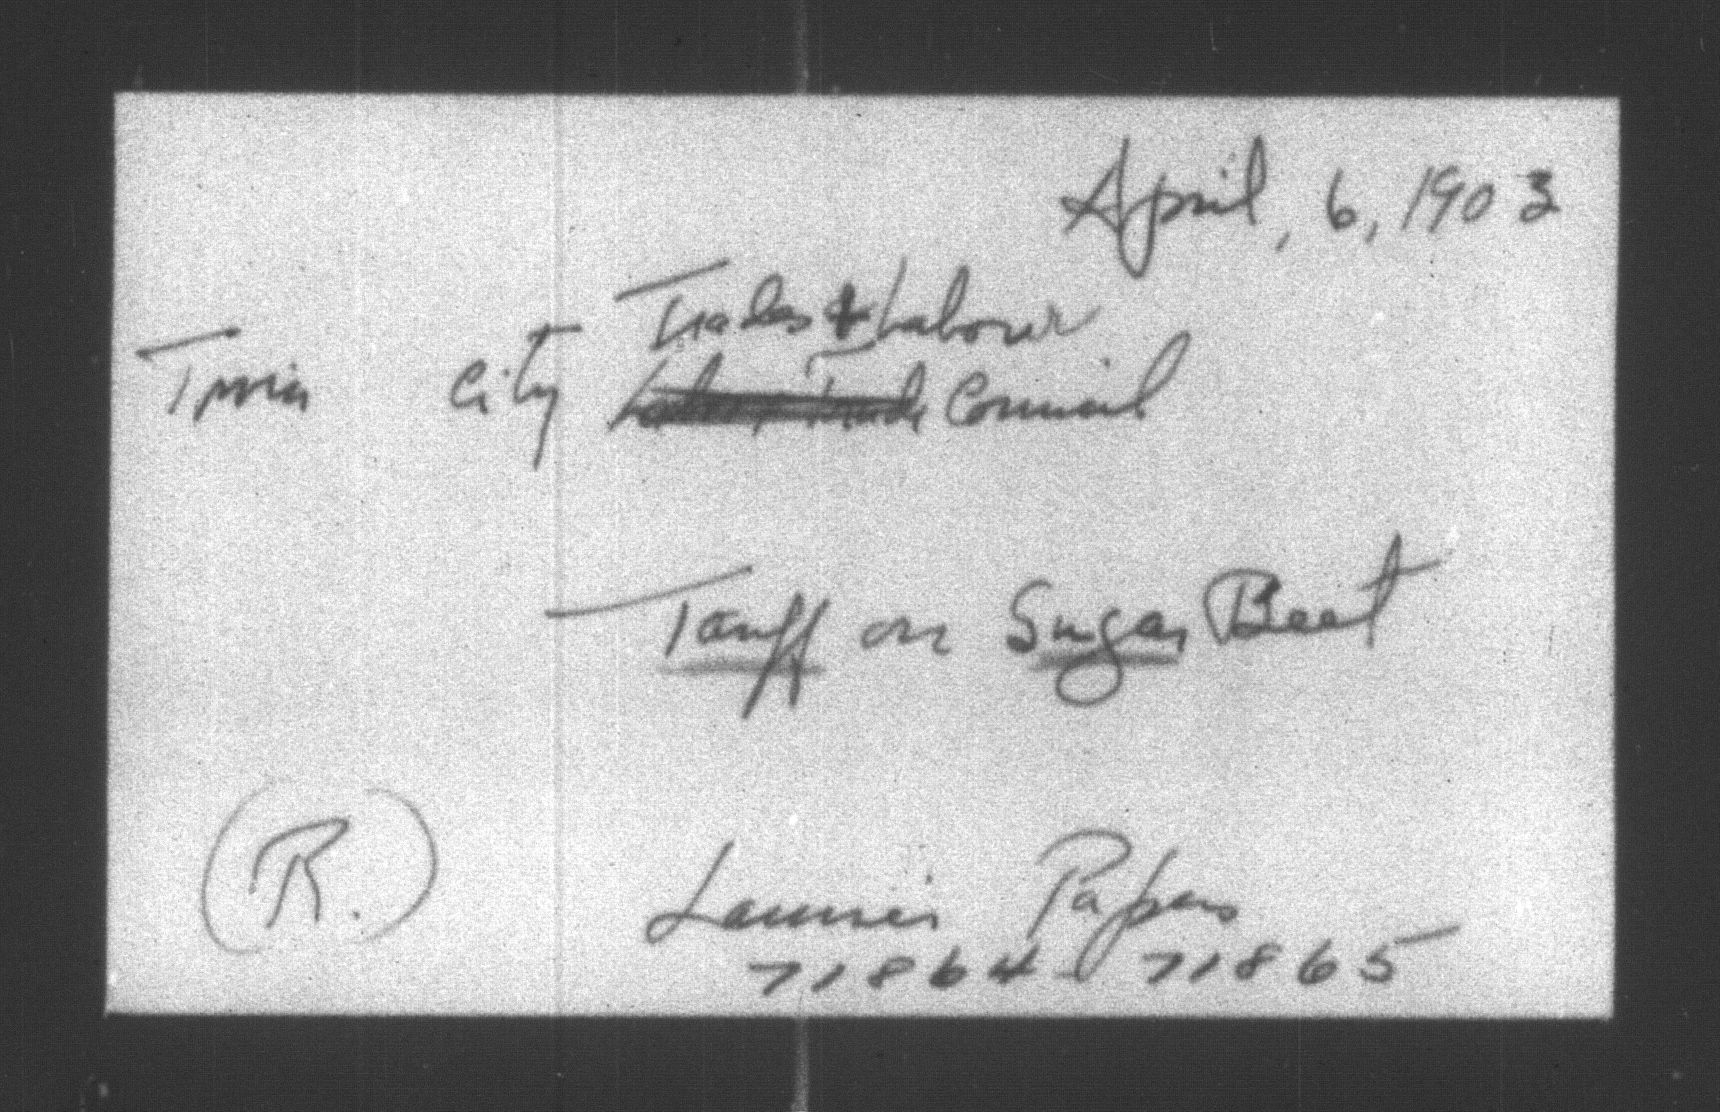 April, 6, 1903
Trades & Labour
Twin City Council
Tariff on Sugar Beet
(R.)
Laurier Papers
71864-71865